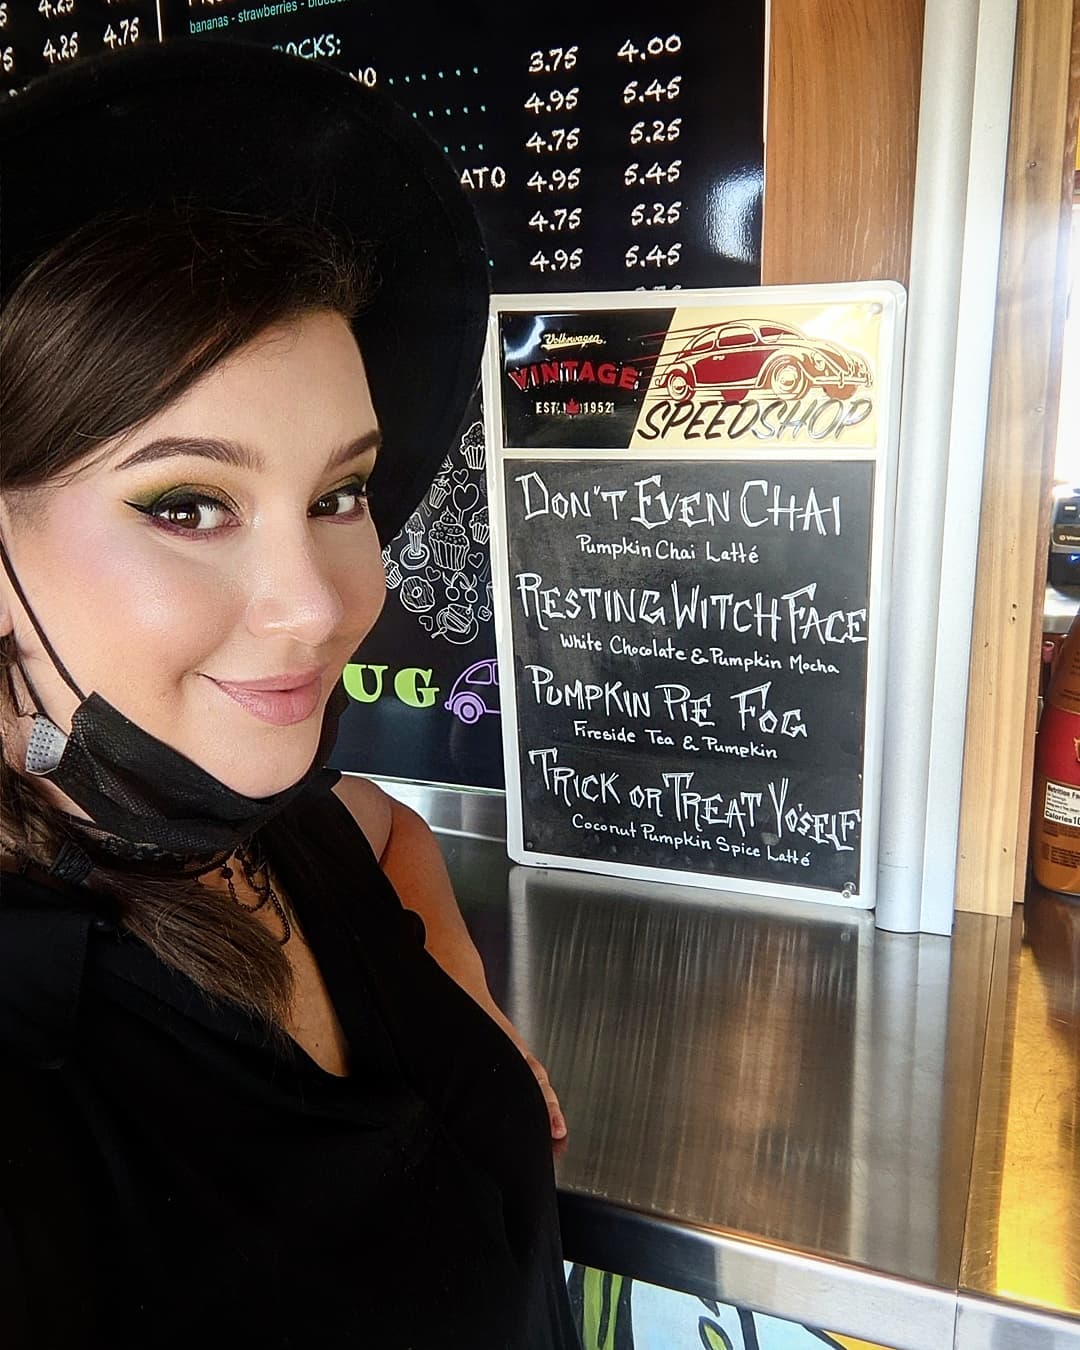 4.25
4.25 4.75
bananas - strawberries -
OCKS:
NO . . . . . . 3.75 4.00
4.95 5.45
4.75 5.25
ATO 4.95 5.45
4.75 5.25
4.95 5.45
Volkswagen
VINTAGE
EST. 1952
SPEEDSHOP
DON'T EVEN CHAI
Pumpkin Chai Latté
RESTING WITCH FACE
White Chocolate & Pumpkin Mocha
PUMPKIN PIE FOG
Fireside Tea & Pumpkin
TRICK OR TREAT YO'SELF
Coconut Pumpkin Spice Latté
UG
Nutrition Fa
Calories 10